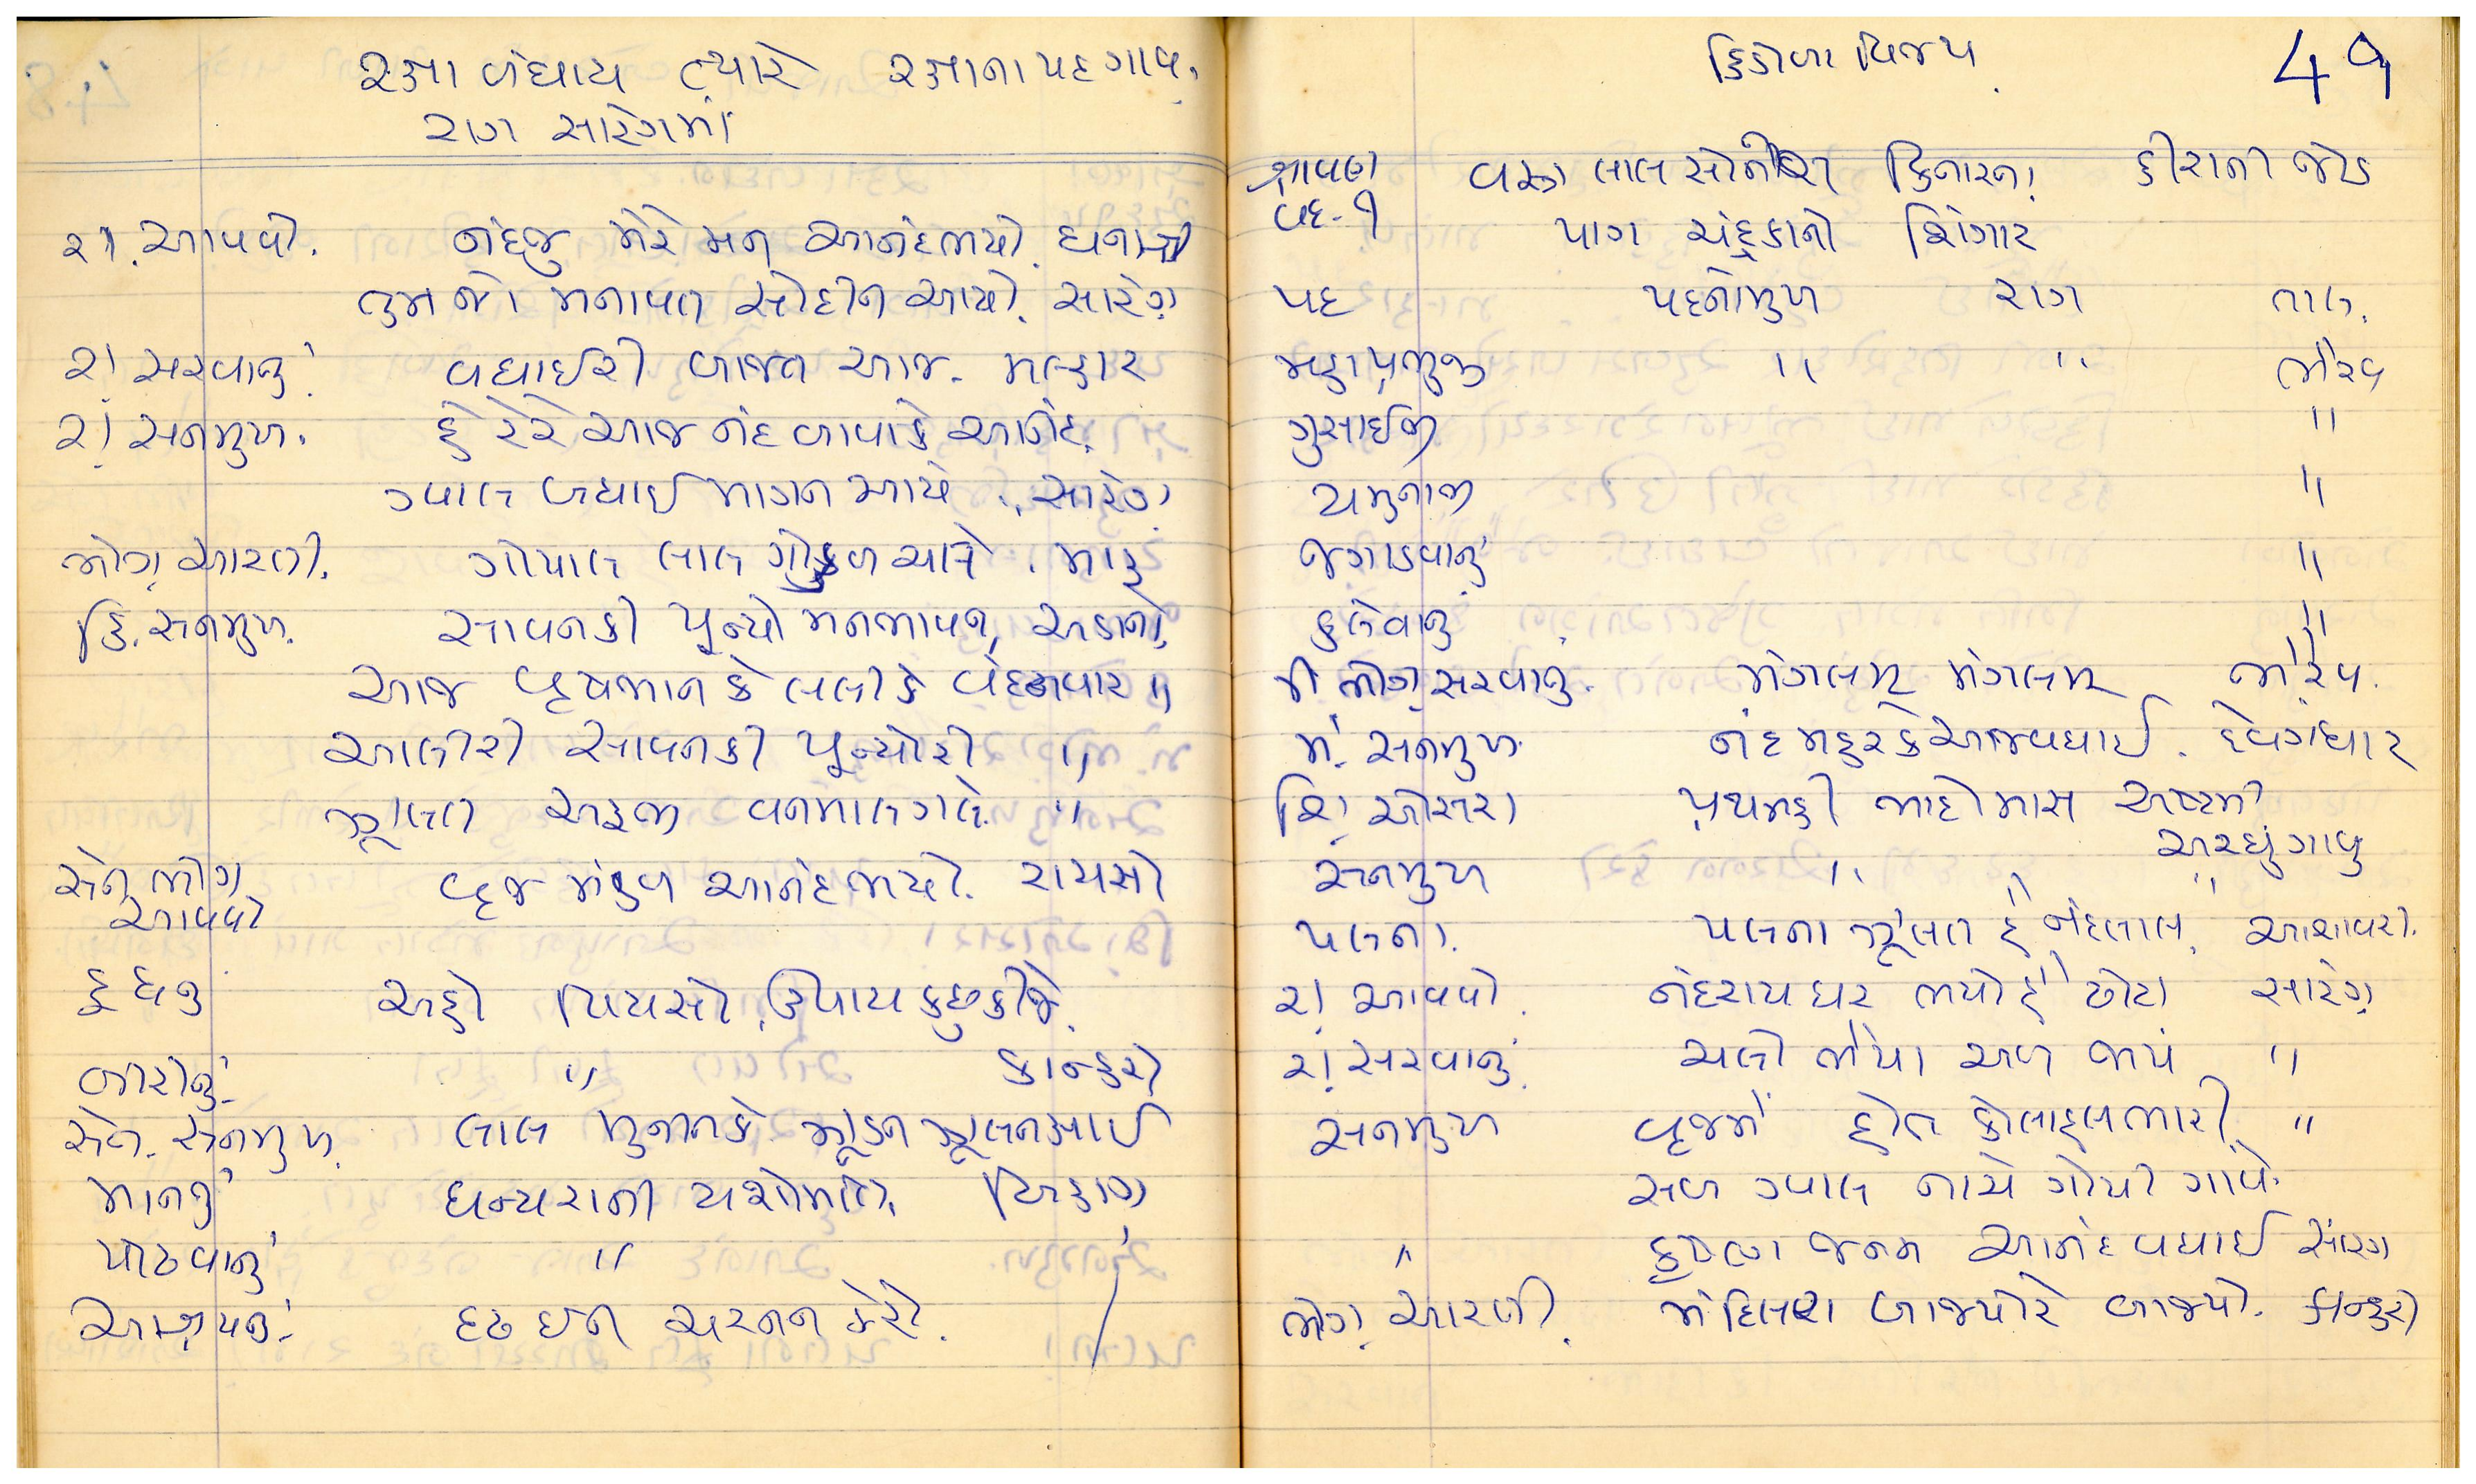 રક્ષા બંધાય ત્યારે રક્ષાના પદ ગાવા.
રાગ સારંગમાં
રા. આવવો. નંદજુ મેરે મન આનંદ ભયો. ધનાશ્રી
તુમ જો મનાવત સોદીન આયો. સારંગ
રા. સરવાનું વધાઈરી બાજત આજ. મલ્હાર
રા. સનમુખ. હે રેરે આજ નંદ બાબાકે આનંદ.
ગ્વાલ બધાઈ માગન આયે. સારંગ
ભોગ આરતી. ગોપાલ લાલ ગોકુળ ચાલે. મારૂ
હિં. સનમુખ. સાવનકી પુન્યો મનભાવન, અડાનો
આજ વૃષભાન કે લલીકે વંદનવાર "
આલીરી સાવનકી પુન્યોરી "
ઝુલત અરૂજી વનમાલગલે. "
સેન ભોગ આવવો વૃજ મંડળ આનંદ ભયો. રાયસો
દુધનું અહો પિયસો ઉપાય કછુ કીજે.
બીરીનું " કાન્હરો
સેન. સનમુખ. લાલ મુનીનકે ઝુંડન ઝુલન આઈ
માનનું ધન્યરાની યશોમતિ. બિહાગ
પોઢવાનું " "
આશ્રયનું દૃઢ ઈન ચરનન કેરો.
હિંડોળા વિજય 49
શ્રાવણ વદ-૧ વસ્ત્ર લાલ સોનેરી કિનારના હીરાની જોડ
પાગ ચંદ્રકાનો શિંગાર
પદ પદનોમુખ રાગ તાલ.
મહાપ્રભુજી " " ભૈરવ
ગુસાંઈજી "
યમુનાજી "
જગાડવાનું "
કલેવાનું "
મં. ભોગ સરવાનું. મંગલમ્ મંગલમ્ ભૈરવ.
મં. સનમુખ નંદ મહરકે આજ વધાઈ. દેવગંધાર
શિં. ઓસરા પ્રથમહી ભાદોમાસ અષ્ટમી
અરધું ગાવું
સનમુખ " " "
પલના. પલના ઝુલત હે નંદલાલ. આશાવરી.
રા. આવવો. નંદરાય ઘર ભયો હે ઢોટા સારંગ
રા. સરવાનું ચલો ભૈયા અબ જાય "
સનમુખ વૃજમેં હોત કોલાહલ ભારી. "
સબ ગ્વાલ નાચે ગોપી ગાવે.
" કૃષ્ણ જનમ આનંદ વધાઈ સારંગ
ભોગ આરતી. મંદિલરા બાજ્યોરે બાજ્યો. કાન્હરો